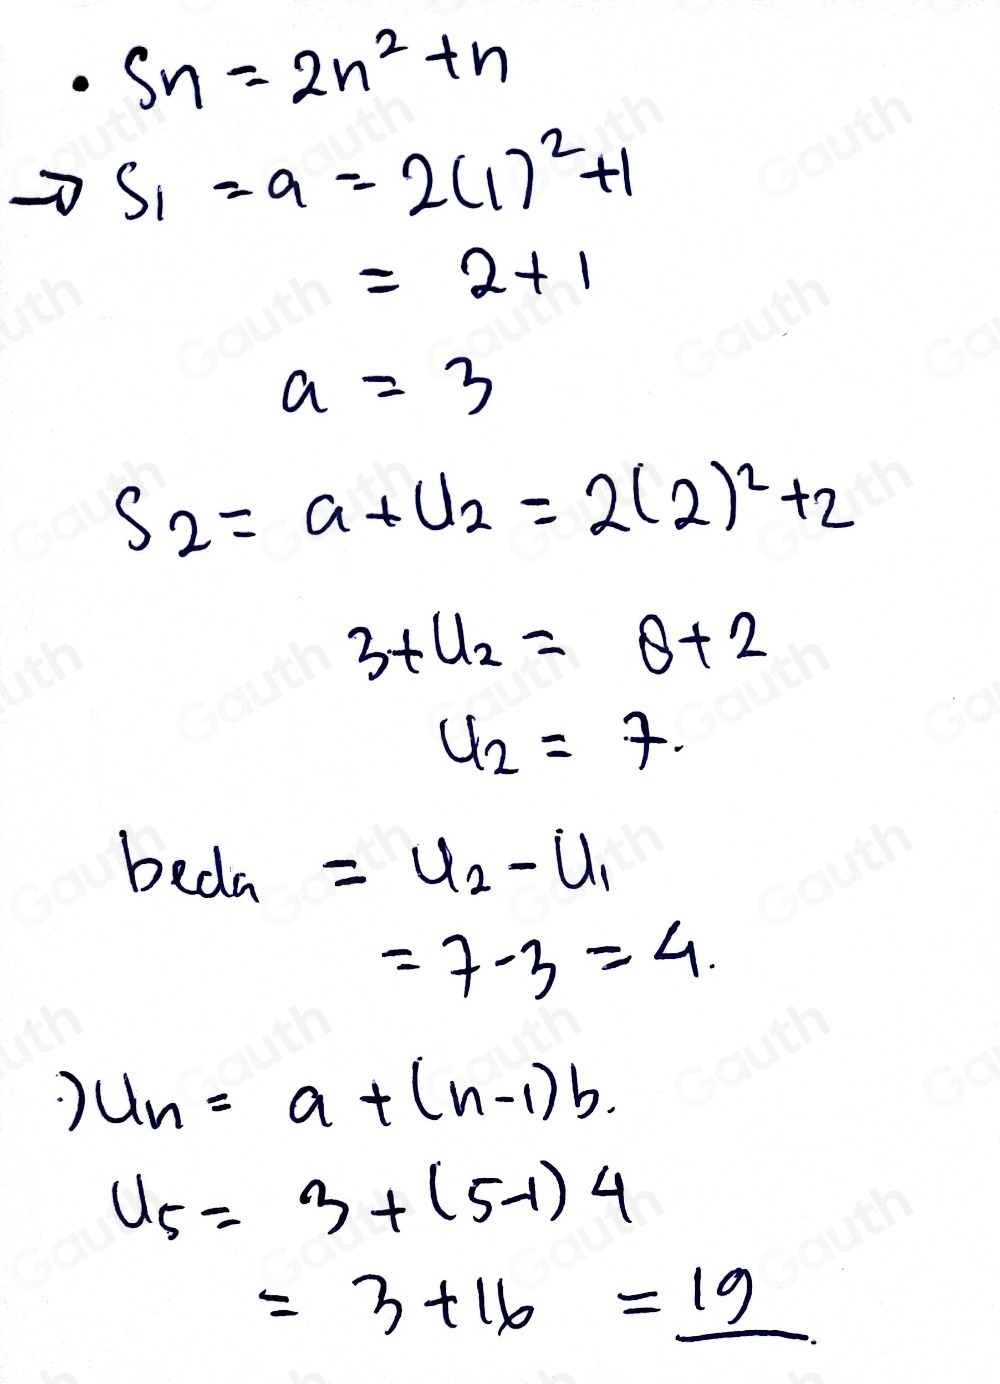 • Sn = 2n² + n
→ S₁ = a = 2(1)² + 1
= 2 + 1
a = 3
S₂ = a + U₂ = 2(2)² + 2
3 + U₂ = 8 + 2
U₂ = 7.
beda = U₂ - U₁
= 7 - 3 = 4.
:) Un = a + (n-1) b.
U₅ = 3 + (5-1) 4
= 3 + 16 = 19
Gauth